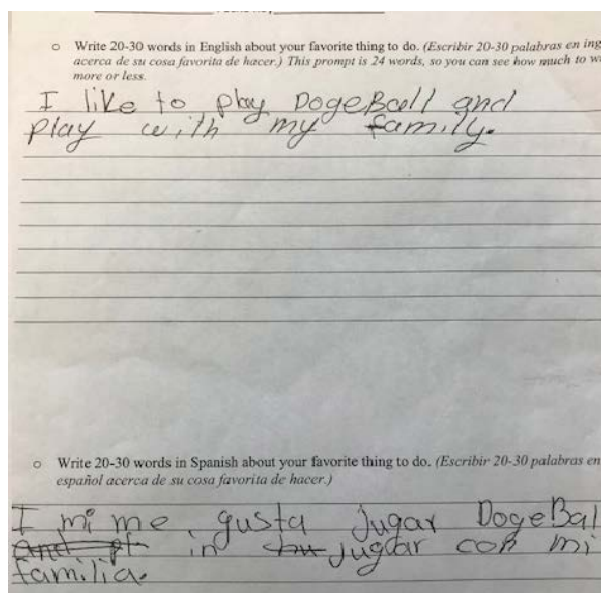 ○ Write 20-30 words in English about your favorite thing to do. (Escribir 20-30 palabras en ing
acerca de su cosa favorita de hacer.) This prompt is 24 words, so you can see how much to w
more or less.
I like to play DogeBall and
play with my family.
○ Write 20-30 words in Spanish about your favorite thing to do. (Escribir 20-30 palabras en
español acerca de su cosa favorita de hacer.)
I mi me gusta Jugar DogeBal
in jugar con mi
familia.